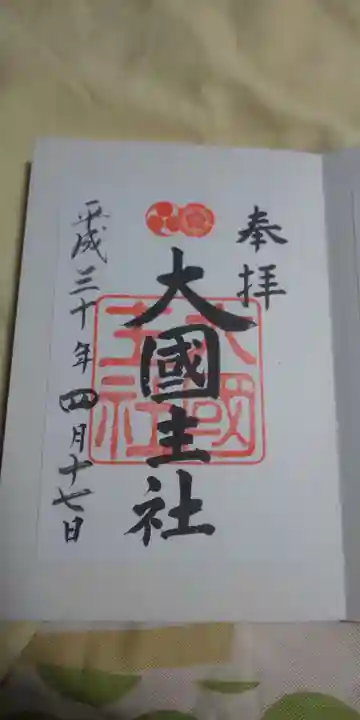 奉拝
大國主社
大國
主社
平成三十年四月十七日